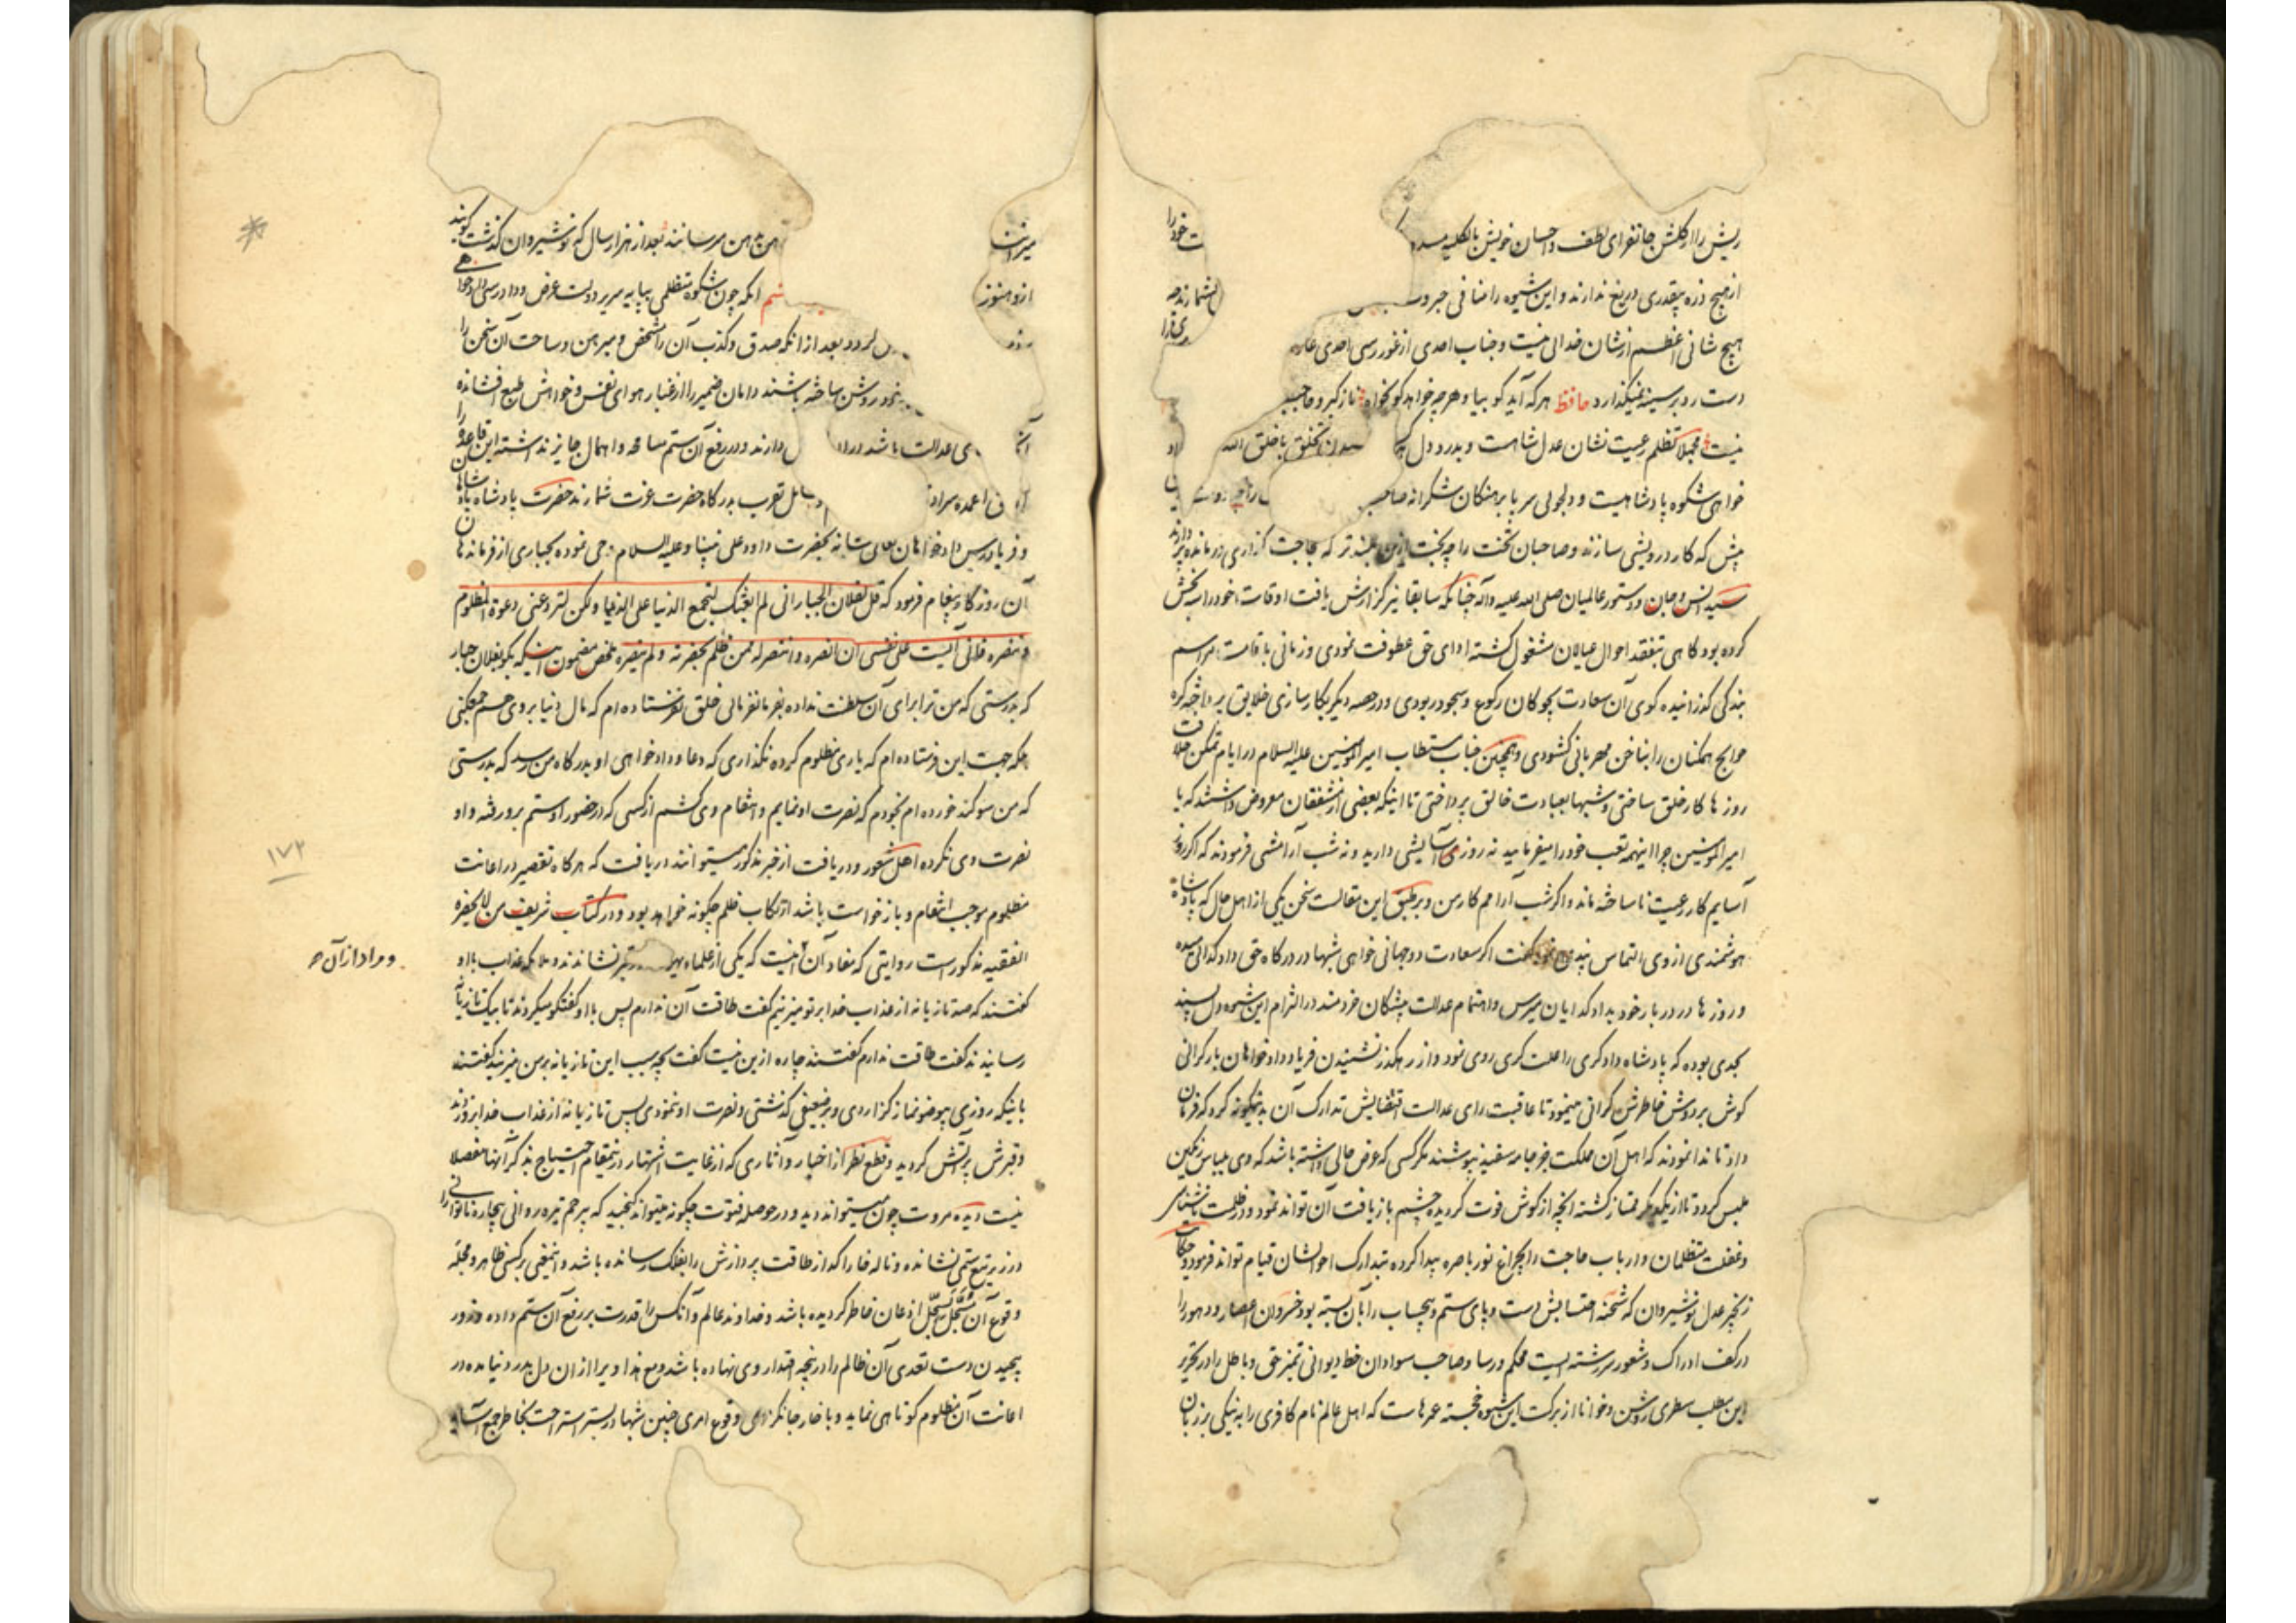 ریش را از گلشن جانفزای لطف و احسان خویش بالکلیه خود را
از هیچ ذره بیقدری دریغ ندارند و این شیوه را منافی جبروت
هیچ شانی اعظم از شان خدائی نیست و جناب احدی از غور رسی احدی
دست رد بر سینه نمیگذارد حافظ هر که آید گو بیا و هر چه خواهد گو بخواه ناز کبر و حاجب
نیست مجملا تظلم رعیت نشان عدل شاهست و بدرد دل تخلق باخلاق الله
خواهی شکوه پادشاهیست و دلجوئی سر با برهنگان شکرانه
پیش که کار درویشی سازند و صاحبان تخت را چه بخت ازین بلندتر که بحاجت گذاری درمانده پردازند
سید انس و جان و دستور عالمیان صلی الله علیه و آله چنانکه سابقا نیز گزارش یافت اوقات خود را بخش
کرده بود گاهی بتفقد احوال عیالان مشغول گشته ادای حق عطوفت نمودی و زمانی باقامت مراسم
بندگی گذرانیده گوی آن سعادت بچوگان رکوع و سجود ربودی و در حصه دیگر بکارسازی خلایق پرداخته گره
حوایج همگنان را بناخن مهربانی گشودی و همچنین جناب مستطاب امیر المومنین علیه السلام در ایام تمکن خلافت
روزها کار خلق ساختی و شبها بعبادت خالق پرداختی تا اینکه بعضی از مشفقان معروض داشتند که یا
امیر المومنین چرا اینهمه تعب خود را میفرمایید نه روزی آسایشی دارید و نه شب آرامشی فرمودند که اگر روز
آسایم کار رعیت ناساخته ماند و اگر شب آرامم کار من و بر طبق این مقالست سخن یکی از اهل حال که پادشاه
هوشمندی از وی التماس پندی نمود گفت اگر سعادت دوجهانی خواهی شبها در درگاه حق داد گدائی میده
و روزها در دربار خود بداد گدایان میرس و اهتمام عدالت پیشگان خردمند در التزام این شیوه دل پسند
بحدی بوده که پادشاه دادگری را علت کری روی نمود و از رهگذر نشنیدن فریاد دادخواهان بار گرانی
گوش بر دوش خاطرش گرانی مینمود تا عاقبت رای عدالت اقتضایش تدارک آن بدینگونه کرد که فرمان
داد تا ندا نمودند که اهل آن مملکت جز جامه سفید نپوشند مگر کسی که عرض حالی داشته باشد که وی بلباس رنگین
ملبس گردد تا از یکدیگر ممتاز گشته آنچه از گوش فوت گردیده چشم باز یافت آن تواند نمود و در ظلمت ناشنوائی
و غفلت متظلمان و ارباب حاجت را بچراغ نور باصره پیدا کرده بتدارک احوالشان قیام تواند فرمود و حکایت
زنجیر عدل نوشیروان که شحنه احتسابش دست و پای ستم و بیحساب را بآن بسته بود خسروان اعصار و دهور را
در کف ادراک و شعور سررشته ایست محکم و رسا و صاحب سوادان خط دیوانی تمیز حق و باطل را در تحریر
این مطلب سطری روشن و خوانا از برکت این شیوه خجسته عمرهاست که اهل عالم نام کافری را به نیکی بر زبان
میرانند دهن بدهن میرسانند بعد از هزار سال که نوشیروان گذشت گویند
از و هنوز آنکه چون شکوه متظلمی بپایه سریر دولت عرض و داد رسی دادخواهی
گردد بعد از آنکه صدق و کذب آن را مشخص و مبرهن و ساحت آن سخن را
روشن ساخته باشند دامان ضمیر را از غبار هوای نفس و خواهش طبع افشانده
آنچه عدالت باشد در دارند و در رفع آن ستم مسامحه و اهمال جایز نداشته این قاعده را
اعمده وسایل تقرب بدرگاه حضرت عزت شمارند حضرت پادشاه پادشاهان
و فریادرس دادخواهان تعالی شانه بحضرت داود علی نبینا و علیه السلام وحی نموده بجباری از فرماندهان
آن روزگار پیغام فرمود که قل لفلان الجبار انی لم ابعثک لتجمع الدنیا علی الدنیا ولکن لترد عنی دعوة المظلوم
و تنصره فانی آلیت علی نفسی ان انصره و انتصر له ممن ظلم بحضرته و لم ینصره ملخص مضمون اینکه بگو بفلان جبار
که بدرستی که من ترا برای آن سلطنت نداده بفرمانفرمائی خلق نفرستاده ام که مال دنیا بر روی هم جمع کنی
بلکه جهت این فرستاده ام که یاری مظلوم کرده نگذاری که دعا و دادخواهی او بدرگاه من رسد که بدرستی
که من سوگند خورده ام بخودم که نصرت او نمایم و انتقام وی کشم از کسی که در حضور او ستم برو رفته و او
نصرت وی نکرده اهل شعور و دریافت از خبر مذکور میتوانند دریافت که هر گاه تقصیر در اعانت
مظلوم موجب انتقام و بازخواست باشد ارتکاب ظلم چگونه خواهد بود و در کتاب شریف من لا یحضره
الفقیه مذکور است روایتی که مفاد آن اینست که یکی از علماء یهود در قبر نشاندند و ملائکه عذاب با او
گفتند که صد تازیانه از عذاب خدا بر تو میزنیم گفت طاقت آن ندارم پس با او گفتگو میکردند تا بیک تازیانه
رسانیدند گفت طاقت ندارم گفتند چاره ازین نیست گفت بچه سبب این تازیانه بر من میزنید گفتند
باینکه روزی بیوضو نماز گزاردی و بر ضعیفی گذشتی و نصرت او ننمودی پس تازیانه از عذاب خدا بر و زدند
و قبرش پر آتش گردید و قطع نظر از اخبار و آثاری که از غایت اشتهار درینمقام احتیاج بذکر آنها مفصلا
نیست دیده مروت چون میتواند دید و در حوصله فتوت چگونه میتواند گنجید که بیرحم تیره روانی بیچاره ناتوانی را
در زیر تیغ ستمی نشانده و ناله خارا گداز طاقت پردازش را بفلک رسانده باشد و اینمعنی بر کسی ظاهر و مجله
وقوع آن مسجل بسجل اذعان خاطر گردیده باشد و خداوند عالم و آنکس را قدرت بر رفع آن ستم داده و زور
پیچیدن دست تعدی آن ظالم را در پنجه اقتدار وی نهاده باشد و مع هذا ویرا از ان دل بدرد نیامده در
اعانت آن مظلوم کوتاهی نماید و با خار جانگزای وقوع امری چنین شبها در بستر استراحت بخاطر جمع آساید
و مراد از آن
۱۷۲